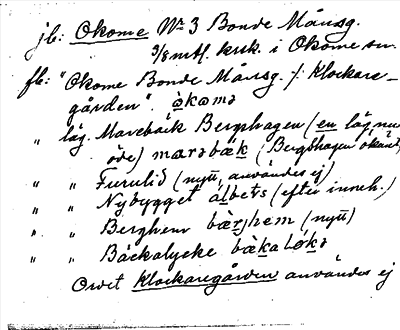 jb: Okome No 3 Bonde Månsg.
3/8 mtl. krk. i Okome sn.
fb: "Okome Bonde Månsg. /: Klockare-
gården". òkomə
" läg. Marebäck Berghagen (en läg. nu
öde) marəbæk (Berghagen okänt)
" " Furulid (nytt, användes ej)
" " Nybygget àlbets (efter inneh.)
" " Berghem bærjhem (nytt)
" " Backalycke bàkaløkə
Ordet Klockaregården användes ej